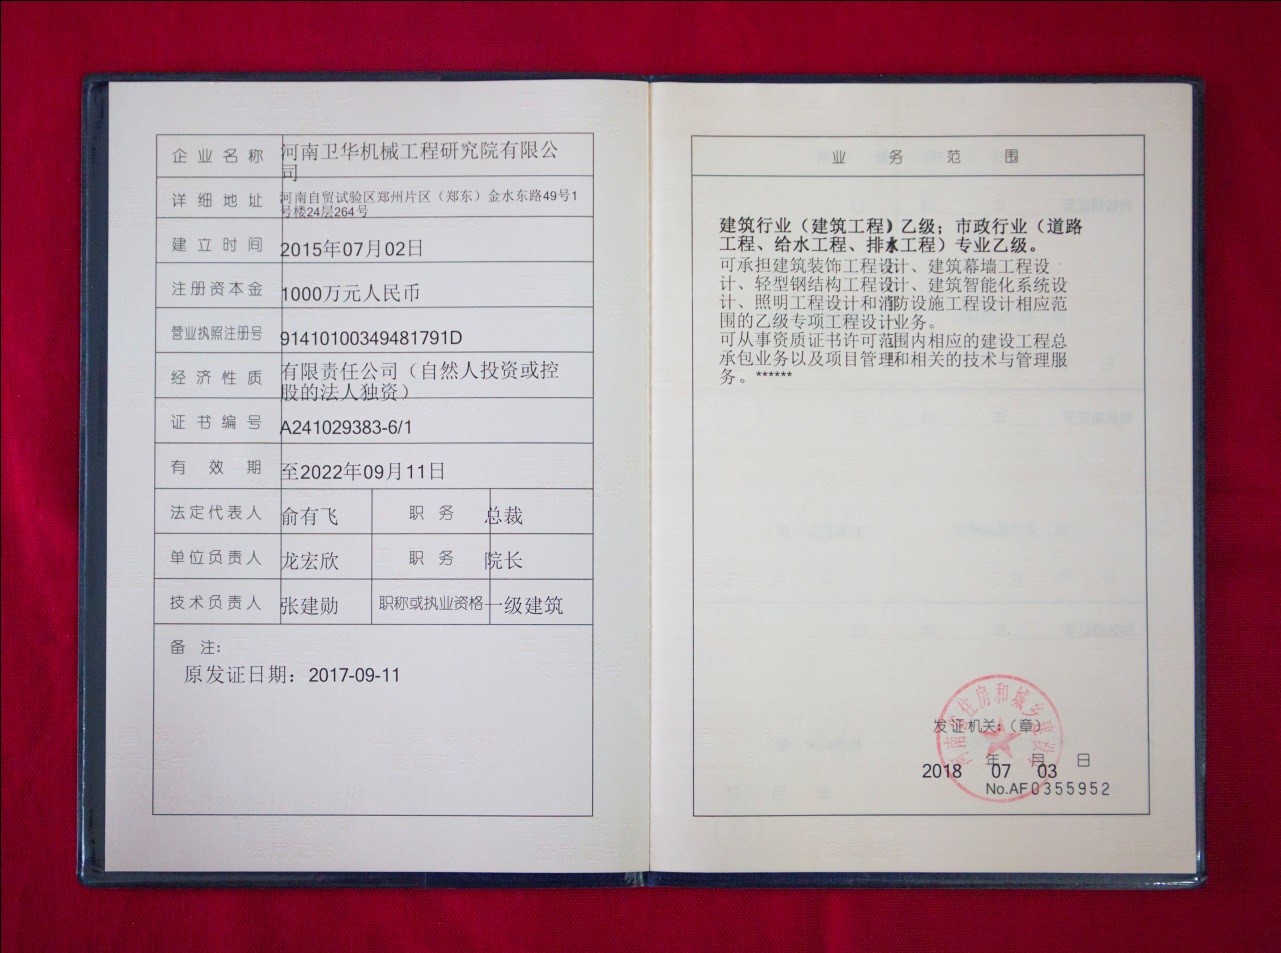 企业名称 河南卫华机械工程研究院有限公
司
详细地址 河南自贸试验区郑州片区（郑东）金水东路49号1
号楼24层264号
建立时间 2015年07月02日
注册资本金 1000万元人民币
营业执照注册号 91410100349481791D
经济性质 有限责任公司（自然人投资或控
股的法人独资）
证书编号 A241029383-6/1
有效期 至2022年09月11日
法定代表人 俞有飞 职务 总裁
单位负责人 龙宏欣 职务 院长
技术负责人 张建勋 职称或执业资格 一级建筑
备注：
原发证日期：2017-09-11
业务范围
建筑行业（建筑工程）乙级；市政行业（道路
工程、给水工程、排水工程）专业乙级。
可承担建筑装饰工程设计、建筑幕墙工程设
计、轻型钢结构工程设计、建筑智能化系统设
计、照明工程设计和消防设施工程设计相应范
围的乙级专项工程设计业务。
可从事资质证书许可范围内相应的建设工程总
承包业务以及项目管理和相关的技术与管理服
务。******
发证机关：（章）
年 月 日
2018 07 03
No.AF0355952